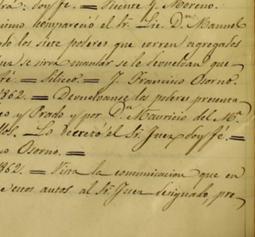 doy fe. = Vicente G. Moreno.
compareció el Sr. Lic. Dn. Manuel
do los siete poderes que corren agregados
se sirva mandar se le devuelvan que
fé. = Silíceo. = J. Francisco Osorno. =
1862. = Devuelvanse los poderes
y Prado y por Dn. Mauricio del
Lo decretó el Sr. Juez. Doy fé. =
co Osorno. =
1862. = Vista la comunicacion que en
autos al Sr. Juez designado, pre